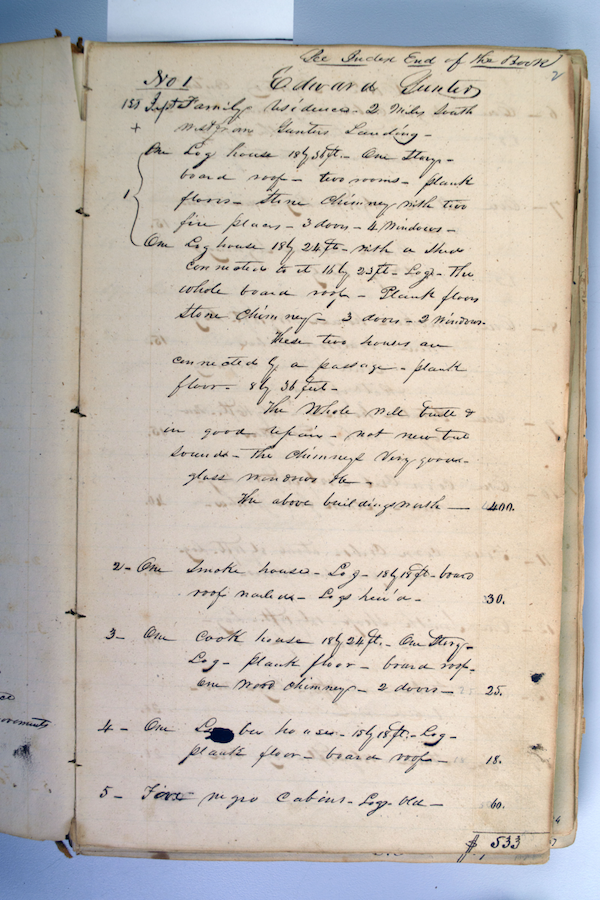 See Index End of the Book
2
No 1 Edward Gunter
1st Impt Family residence - 2 Miles South
+ west from Gunters Landing -
One Log house 18 by 36 ft. - One Story -
board roof - two rooms - plank
floors - Stone Chimney with two
fire places - 3 doors - 4 Windows -
1
One Log house 18 by 24 ft - with a Shed
connected to it 16 by 23 ft - Logs - the
whole board roof - Plank floors
Stone Chimney - 3 doors - 2 Windows -
These two houses are
connected by a passage - plank
floor - 8 by 36 feet -
The Whole Well built &
in good repair - not new but
sound - the Chimneys Very good -
glass windows &c
The above buildings worth — 400.
2 - One Smoke house - Log - 18 by 18 ft - board
roof nailed - Logs hew'd - 30.
3 - One Cook house 18 by 24 ft. - One Story -
Log - plank floor - board roof -
One Wood Chimney - 2 doors - 25.
4 - One house - 15 by 18 ft. - Log -
plank floor - board roof - 18.
5 - Five negro Cabins - Logs - Old - 60.
$ 533